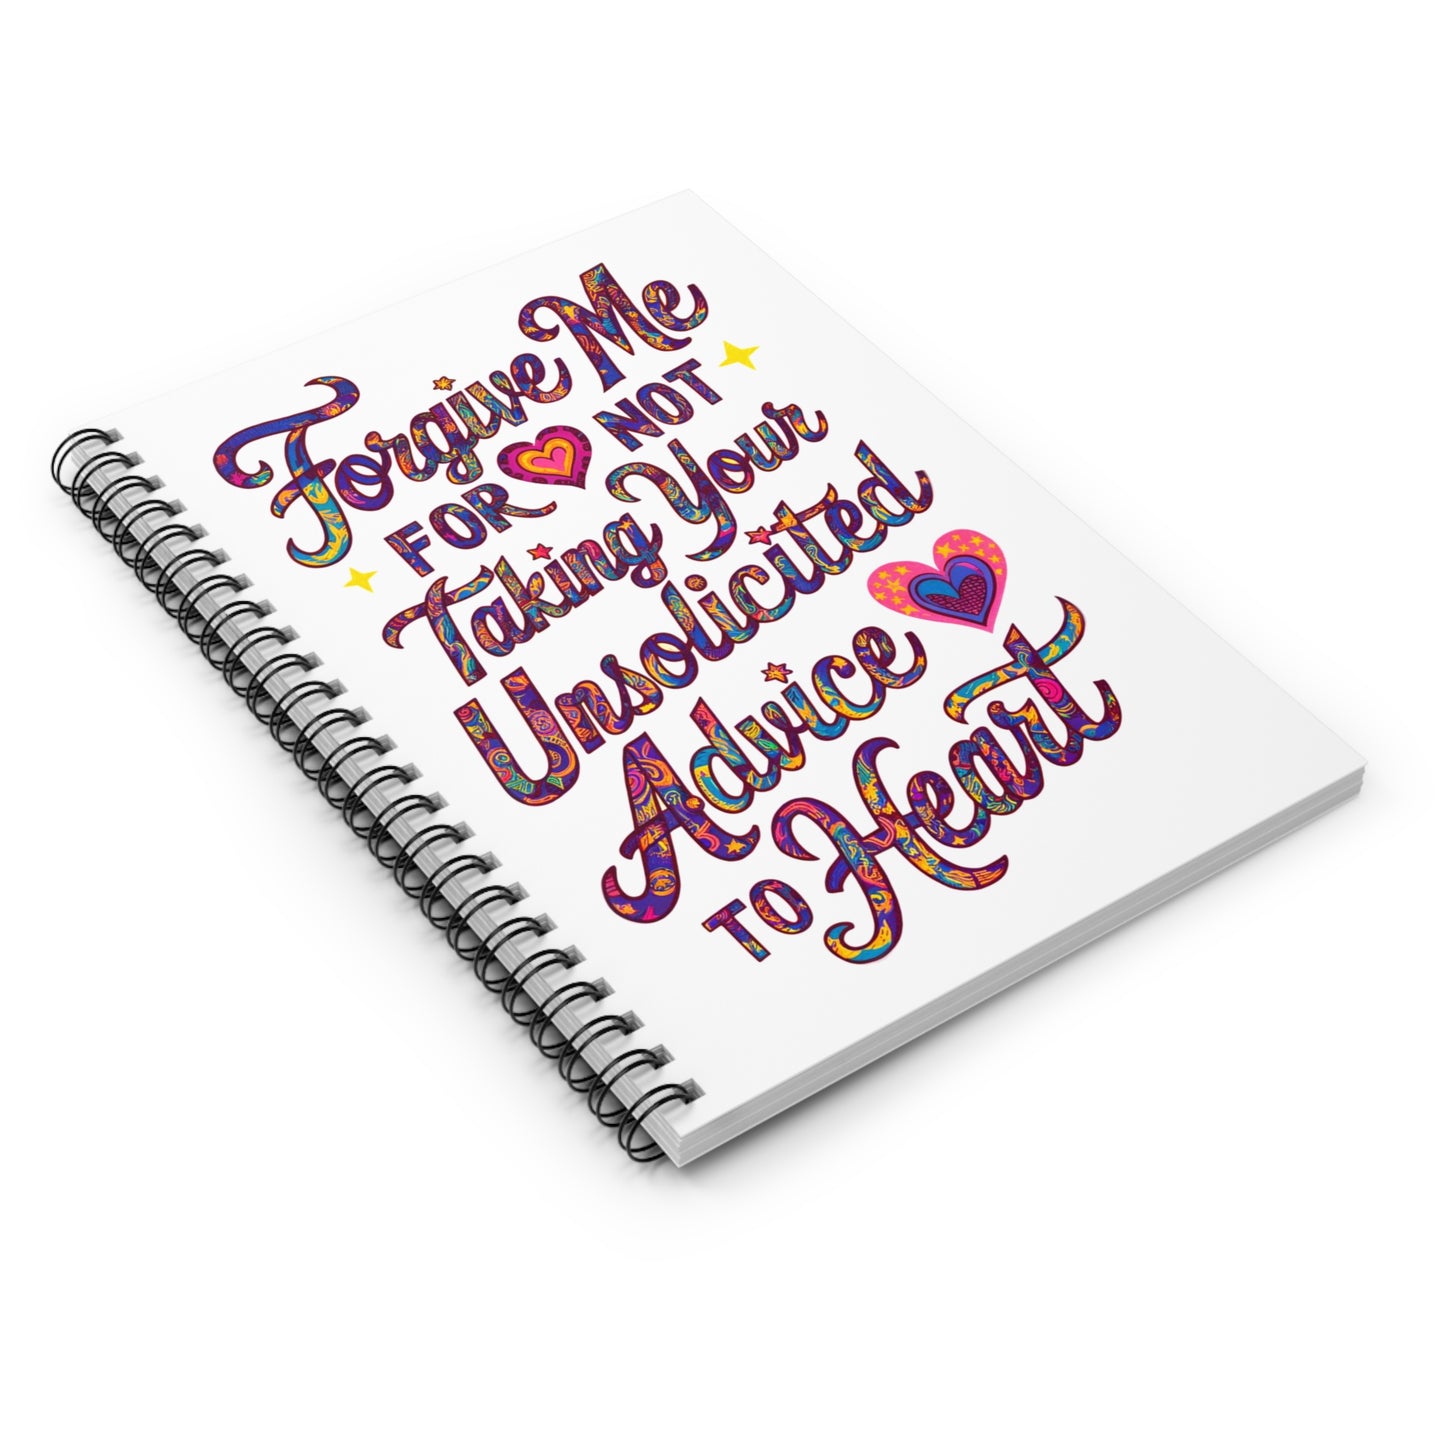 Forgive Me
FOR NOT
Taking Your
Unsolicited
Advice
TO Heart